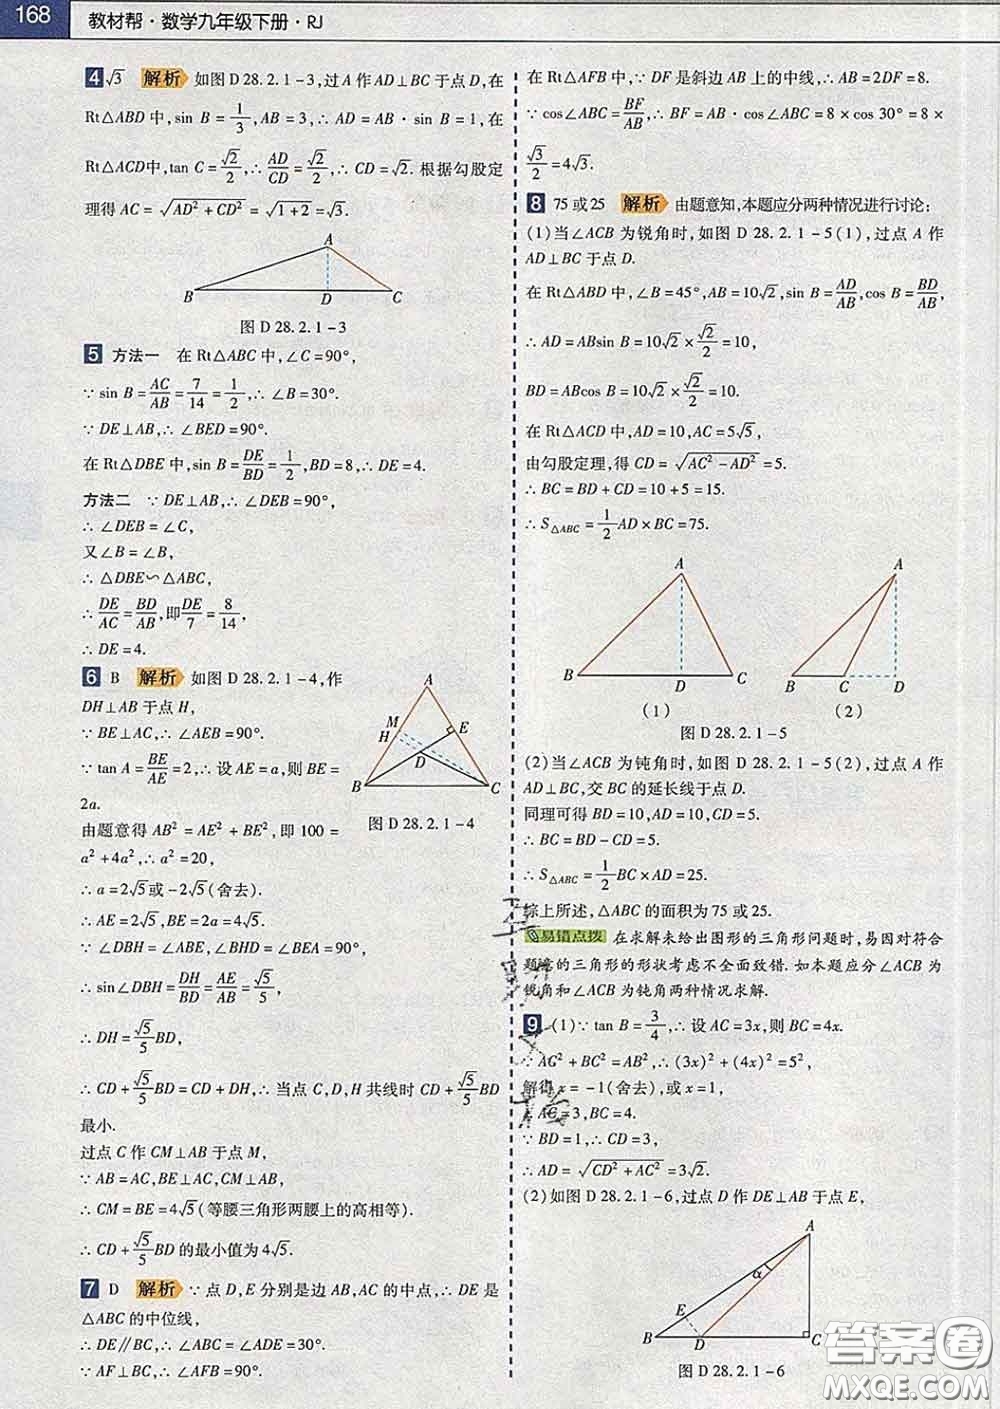 168 教材帮·数学九年级下册·RJ
4 √3 解析 如图 D 28.2.1-3,过 A 作 AD⊥BC 于点 D,在
Rt△ABD 中,sin B=1/3,AB=3,∴ AD=AB·sin B=1,在
Rt△ACD中,tan C=√2/2,∴ AD/CD=√2/2,∴ CD=√2. 根据勾股定
理得 AC=√(AD²+CD²)=√(1+2)=√3.
A
B D C
图 D 28.2.1-3
5 方法一 在 Rt△ABC 中,∠C=90°,
∵ sin B=AC/AB=7/14=1/2,∴ ∠B=30°.
∵ DE⊥AB,∴ ∠BED=90°.
在 Rt△DBE 中,sin B=DE/BD=1/2,BD=8,∴ DE=4.
方法二 ∵ DE⊥AB,∴ ∠DEB=90°,
∴ ∠DEB=∠C,
又∠B=∠B,
∴ △DBE∽△ABC,
∴ DE/AC=BD/AB,即DE/7=8/14,
∴ DE=4.
6 B 解析 如图 D 28.2.1-4,作
DH⊥AB 于点 H,
∵ BE⊥AC,∴ ∠AEB=90°.
∵ tan A=BE/AE=2,∴ 设 AE=a,则 BE=
2a.
由题意得 AB²=AE²+BE²,即 100=
a²+4a²,∴ a²=20,
∴ a=2√5或-2√5(舍去).
∴ AE=2√5,BE=2a=4√5.
A
M E
H
D
B C
图 D 28.2.1-4
∵ ∠DBH=∠ABE,∠BHD=∠BEA=90°,
∴ sin∠DBH=DH/BD=AE/AB=√5/5,
∴ DH=√5/5BD,
∴ CD+√5/5BD=CD+DH,∴ 当点 C,D,H 共线时 CD+√5/5BD
最小.
过点 C 作 CM⊥AB 于点 M,
∵ AB=AC,BE⊥AC,CM⊥AB,
∴ CM=BE=4√5(等腰三角形两腰上的高相等).
∴ CD+√5/5BD 的最小值为 4√5.
7 D 解析 ∵ 点 D,E 分别是边 AB,AC 的中点,∴ DE 是
△ABC 的中位线,
∴ DE∥BC,∴ ∠ABC=∠ADE=30°.
∵ AF⊥BC,∴ ∠AFB=90°.
在 Rt△AFB 中,∵ DF 是斜边 AB 上的中线,∴ AB=2DF=8.
∵ cos∠ABC=BF/AB,∴ BF=AB·cos∠ABC=8×cos 30°=8×
√3/2=4√3.
8 75 或 25 解析 由题意知,本题应分两种情况进行讨论:
(1)当∠ACB 为锐角时,如图 D 28.2.1-5(1),过点 A 作
AD⊥BC 于点 D.
在 Rt△ABD 中,∠B=45°,AB=10√2,sin B=AD/AB,cos B=BD/AB,
∴ AD=ABsin B=10√2×√2/2=10,
BD=ABcos B=10√2×√2/2=10.
在 Rt△ACD 中,AD=10,AC=5√5,
由勾股定理,得 CD=√(AC²-AD²)=5.
∴ BC=BD+CD=10+5=15.
∴ S△ABC=1/2AD×BC=75.
A A
B D C B C D
(1) (2)
图 D 28.2.1-5
(2)当∠ACB 为钝角时,如图 D 28.2.1-5(2),过点 A 作
AD⊥BC,交 BC 的延长线于点 D.
同理可得 BD=10,AD=10,CD=5.
∴ BC=BD-CD=5.
∴ S△ABC=1/2BC×AD=25.
综上所述,△ABC 的面积为 75 或 25.
易错点拨 在求解未给出图形的三角形问题时,易因对符合
题意的三角形的形状考虑不全面致错. 如本题应分∠ACB 为
锐角和∠ACB 为钝角两种情况求解.
9 (1)∵ tan B=3/4,∴ 设 AC=3x,则 BC=4x.
∵ AC²+BC²=AB²,∴ (3x)²+(4x)²=5²,
解得 x=-1(舍去),或 x=1,
∴ AC=3,BC=4.
∵ BD=1,∴ CD=3,
∴ AD=√(CD²+AC²)=3√2.
(2)如图 D 28.2.1-6,过点 D 作 DE⊥AB 于点 E,
A
α
E
B D C
图 D 28.2.1-6
答案圈
MXQE.COM